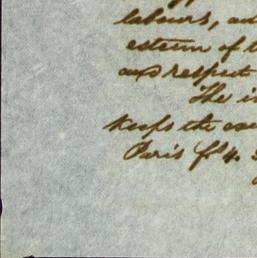 labours, an
esteem of t
and respect
The i
keeps the
Paris